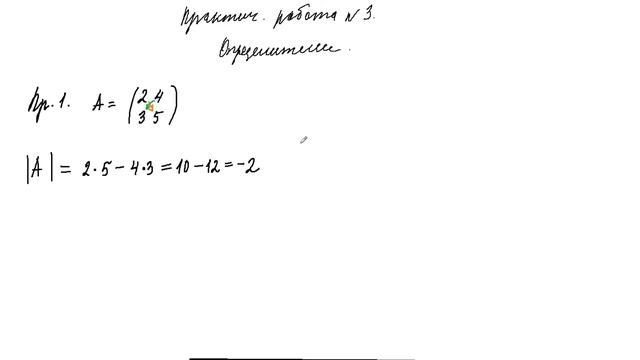 Практич. работа №3.
Определители.
Пр.1. A = (2 4
3 5)
|A| = 2·5 - 4·3 = 10 - 12 = -2